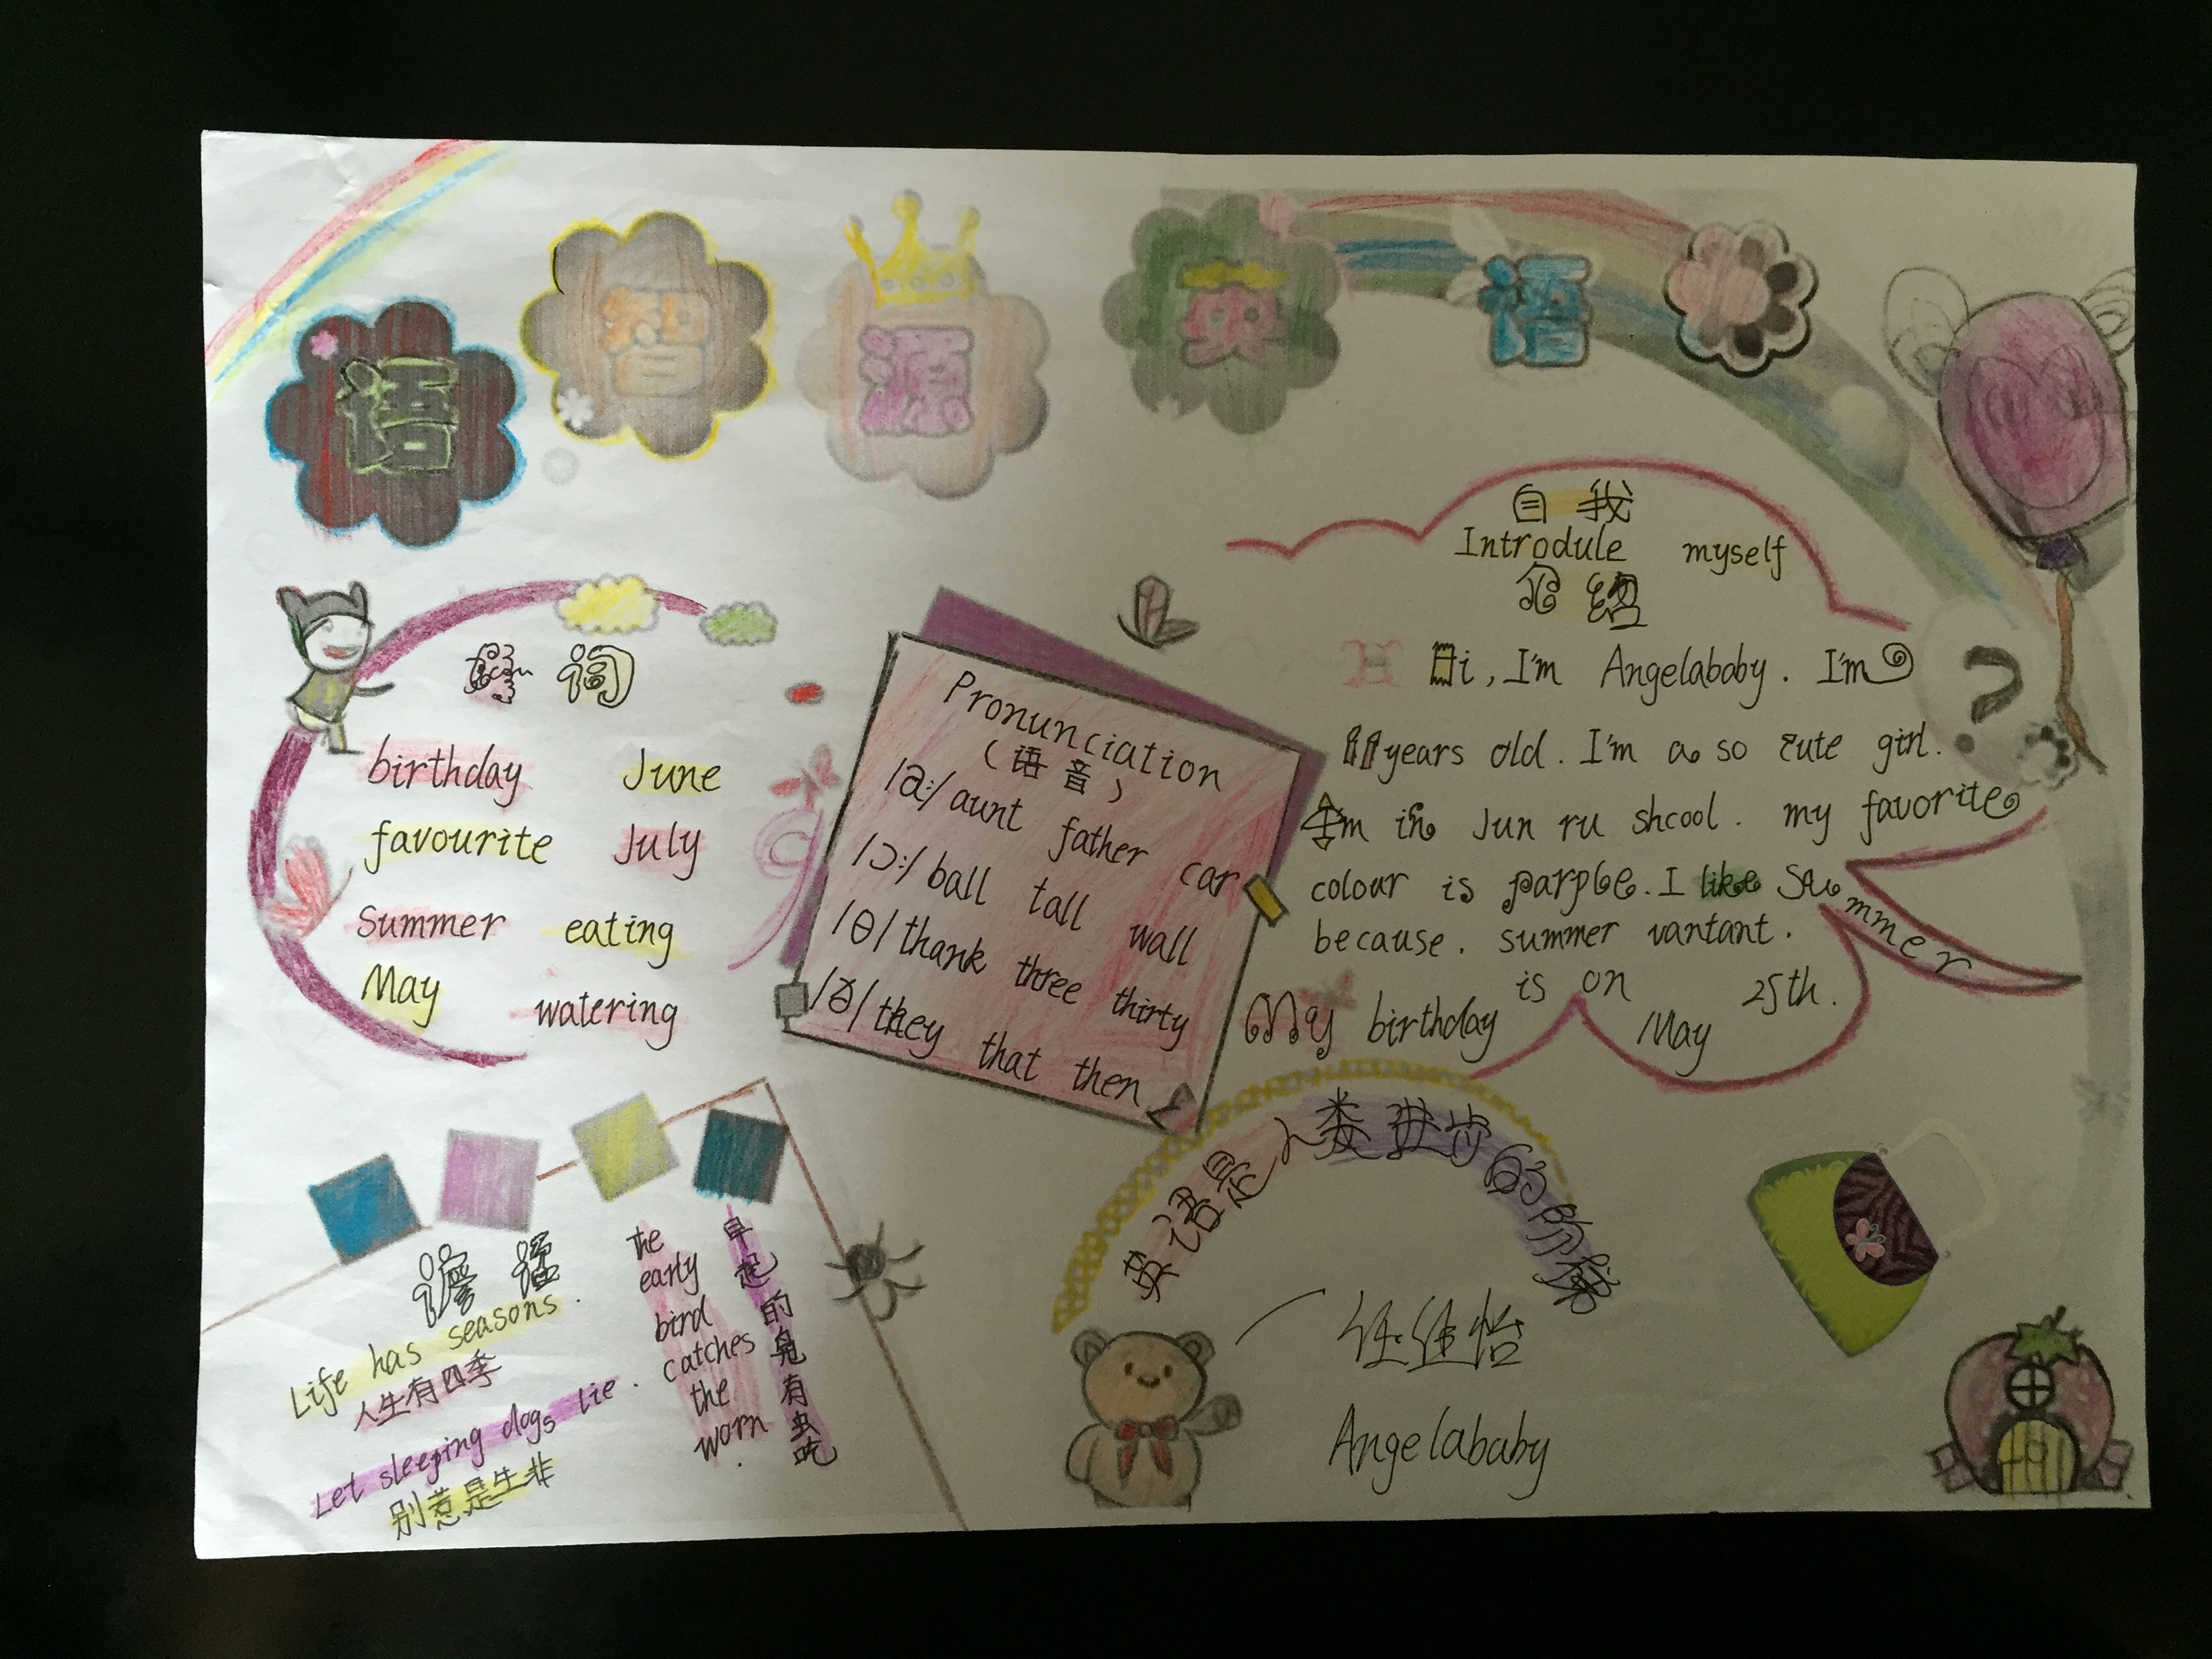 语 智 源
英 语
词
birthday June
favourite July
Summer eating
May watering
Pronunciation
(语音)
/a:/ aunt father car
/ɔ:/ ball tall wall
/θ/ thank three thirty
/ð/ they that then
自我
Introdule myself
介绍
Hi, I'm Angelababy. I'm
11 years old. I'm a so cute girl.
I'm in Jun ru shcool. my favorite
colour is parple. I like Summer
because. summer vantant.
My birthday is on May 25th.
Life has seasons.
人生有四季
Let sleeping dogs lie.
别惹是生非
the
early
bird
catches
the
worn.
早起的鸟有虫吃
英语是人类进步的阶梯
任佳怡
Angelababy